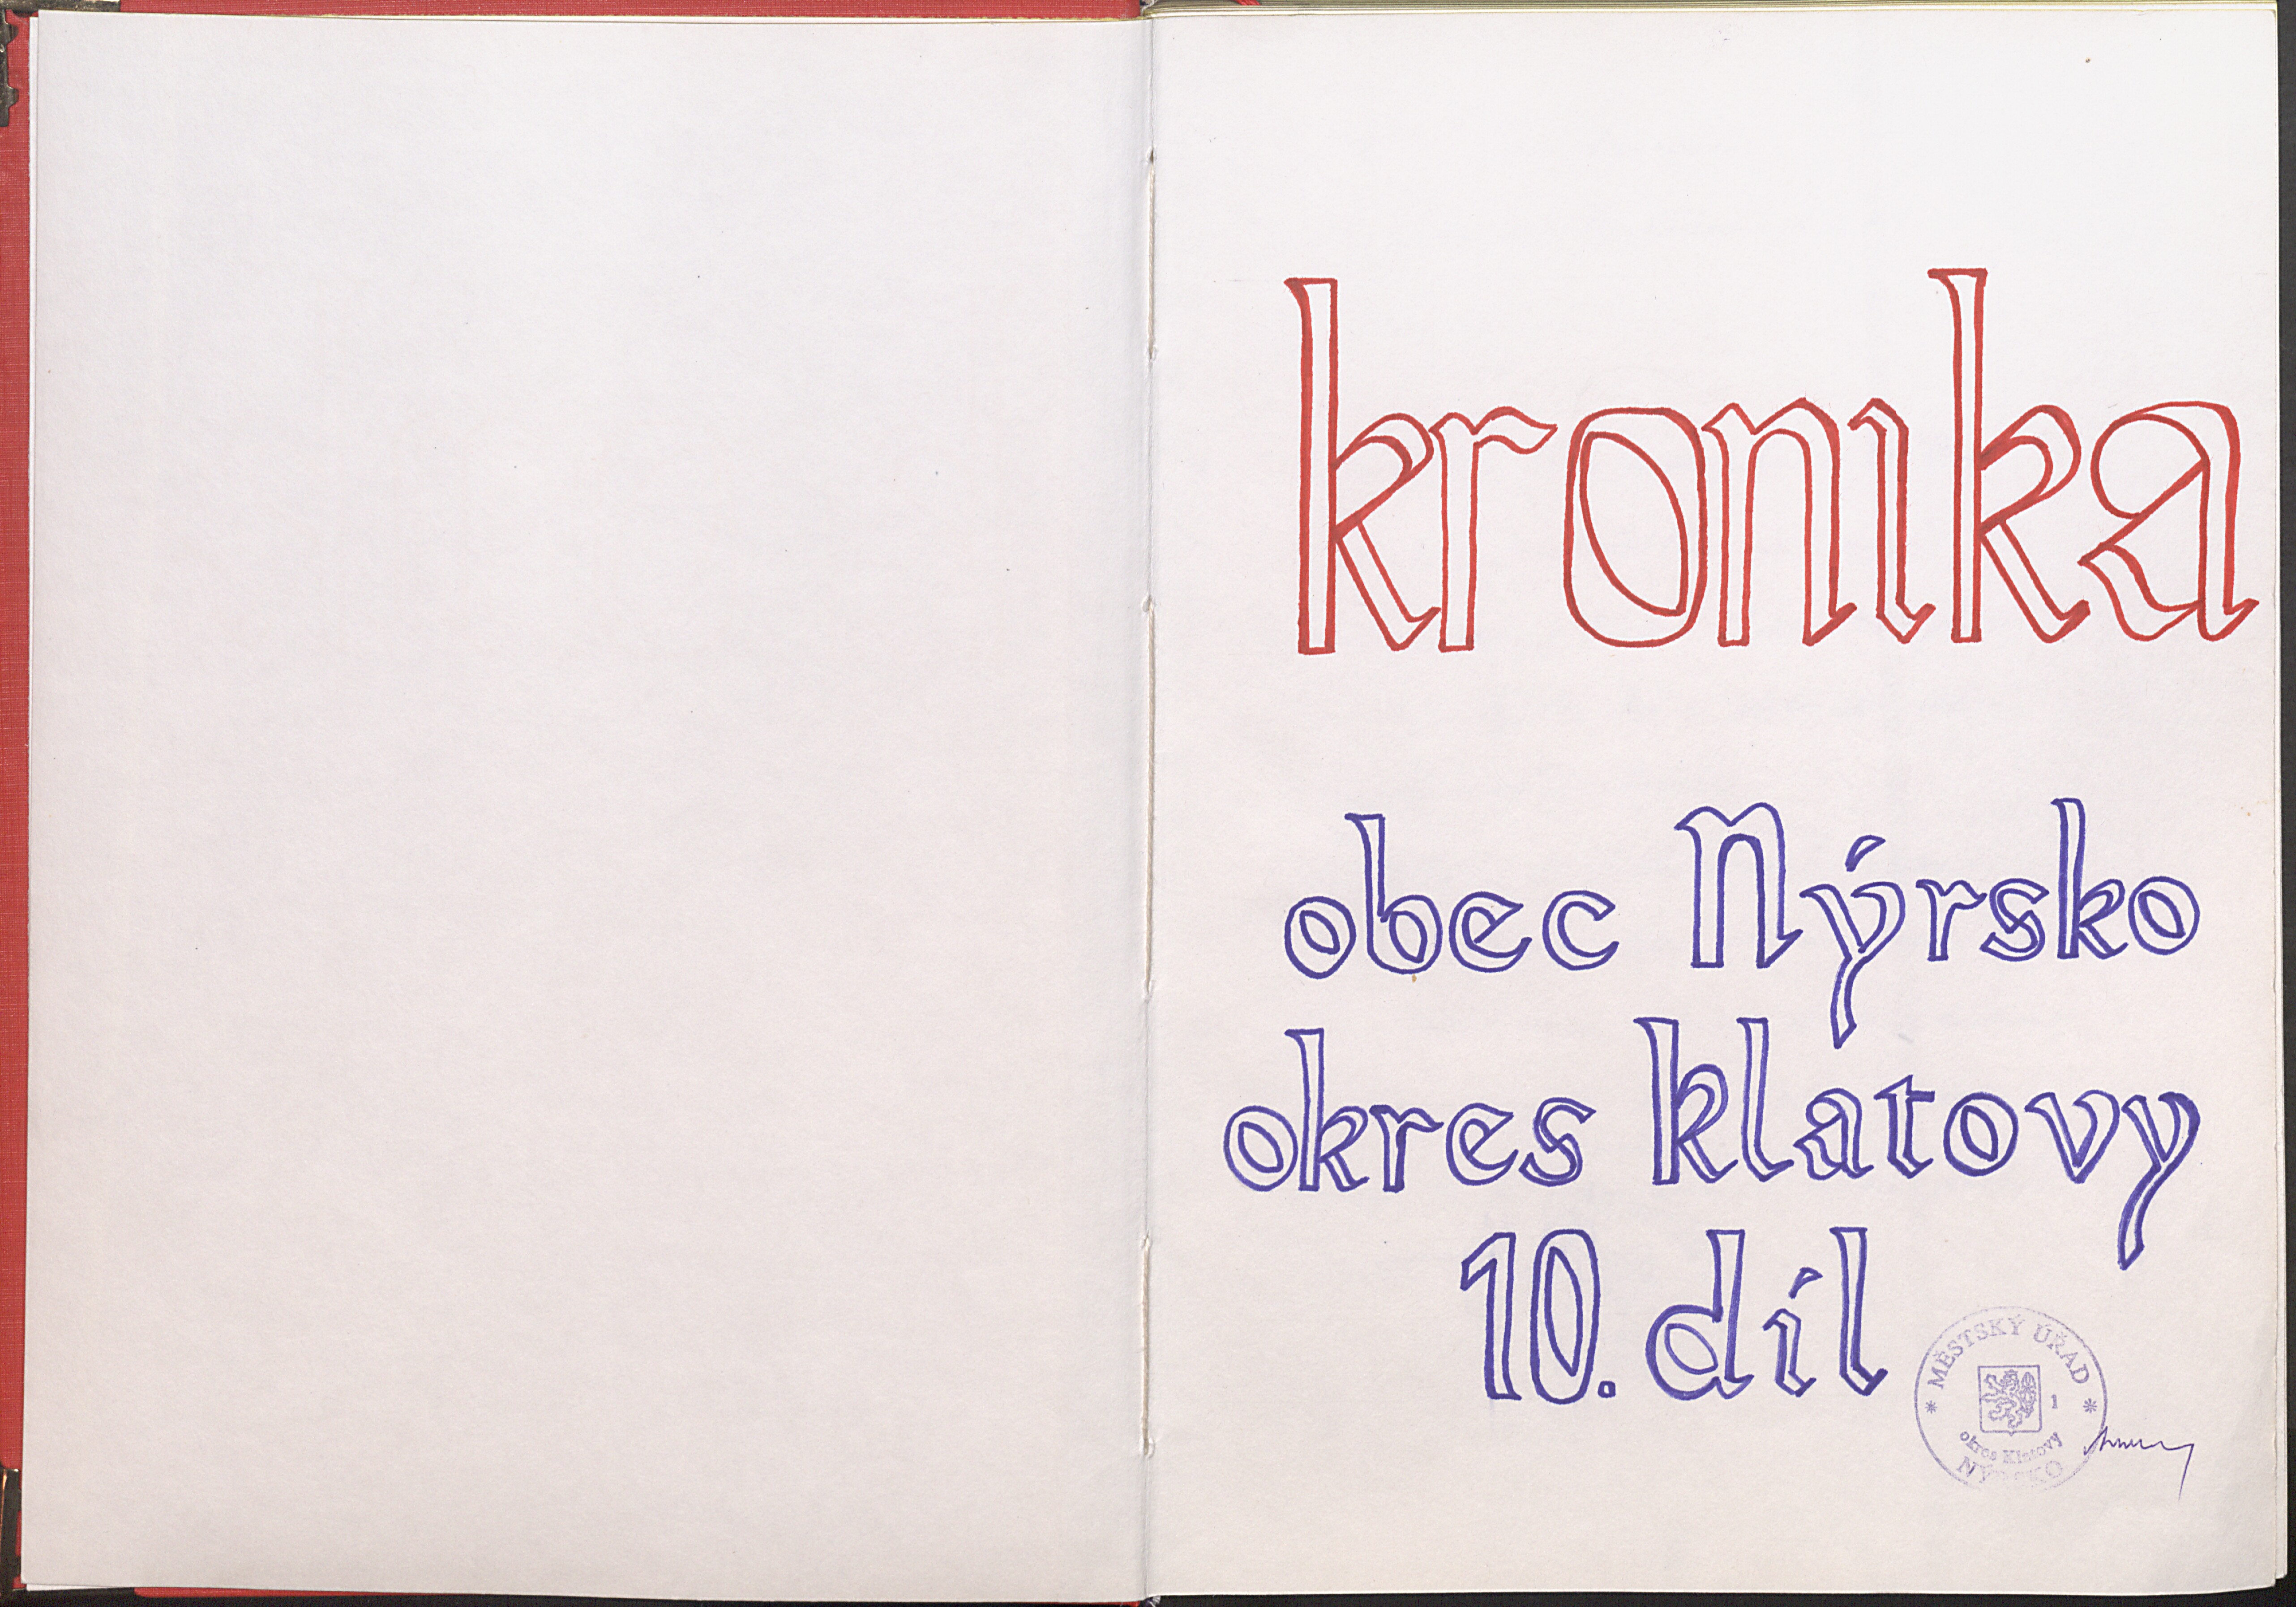 kronika
obec Nýrsko
okres klatovy
10. díl
* MĚSTSKÝ ÚŘAD *
1
okres Klatovy
NÝRSKO